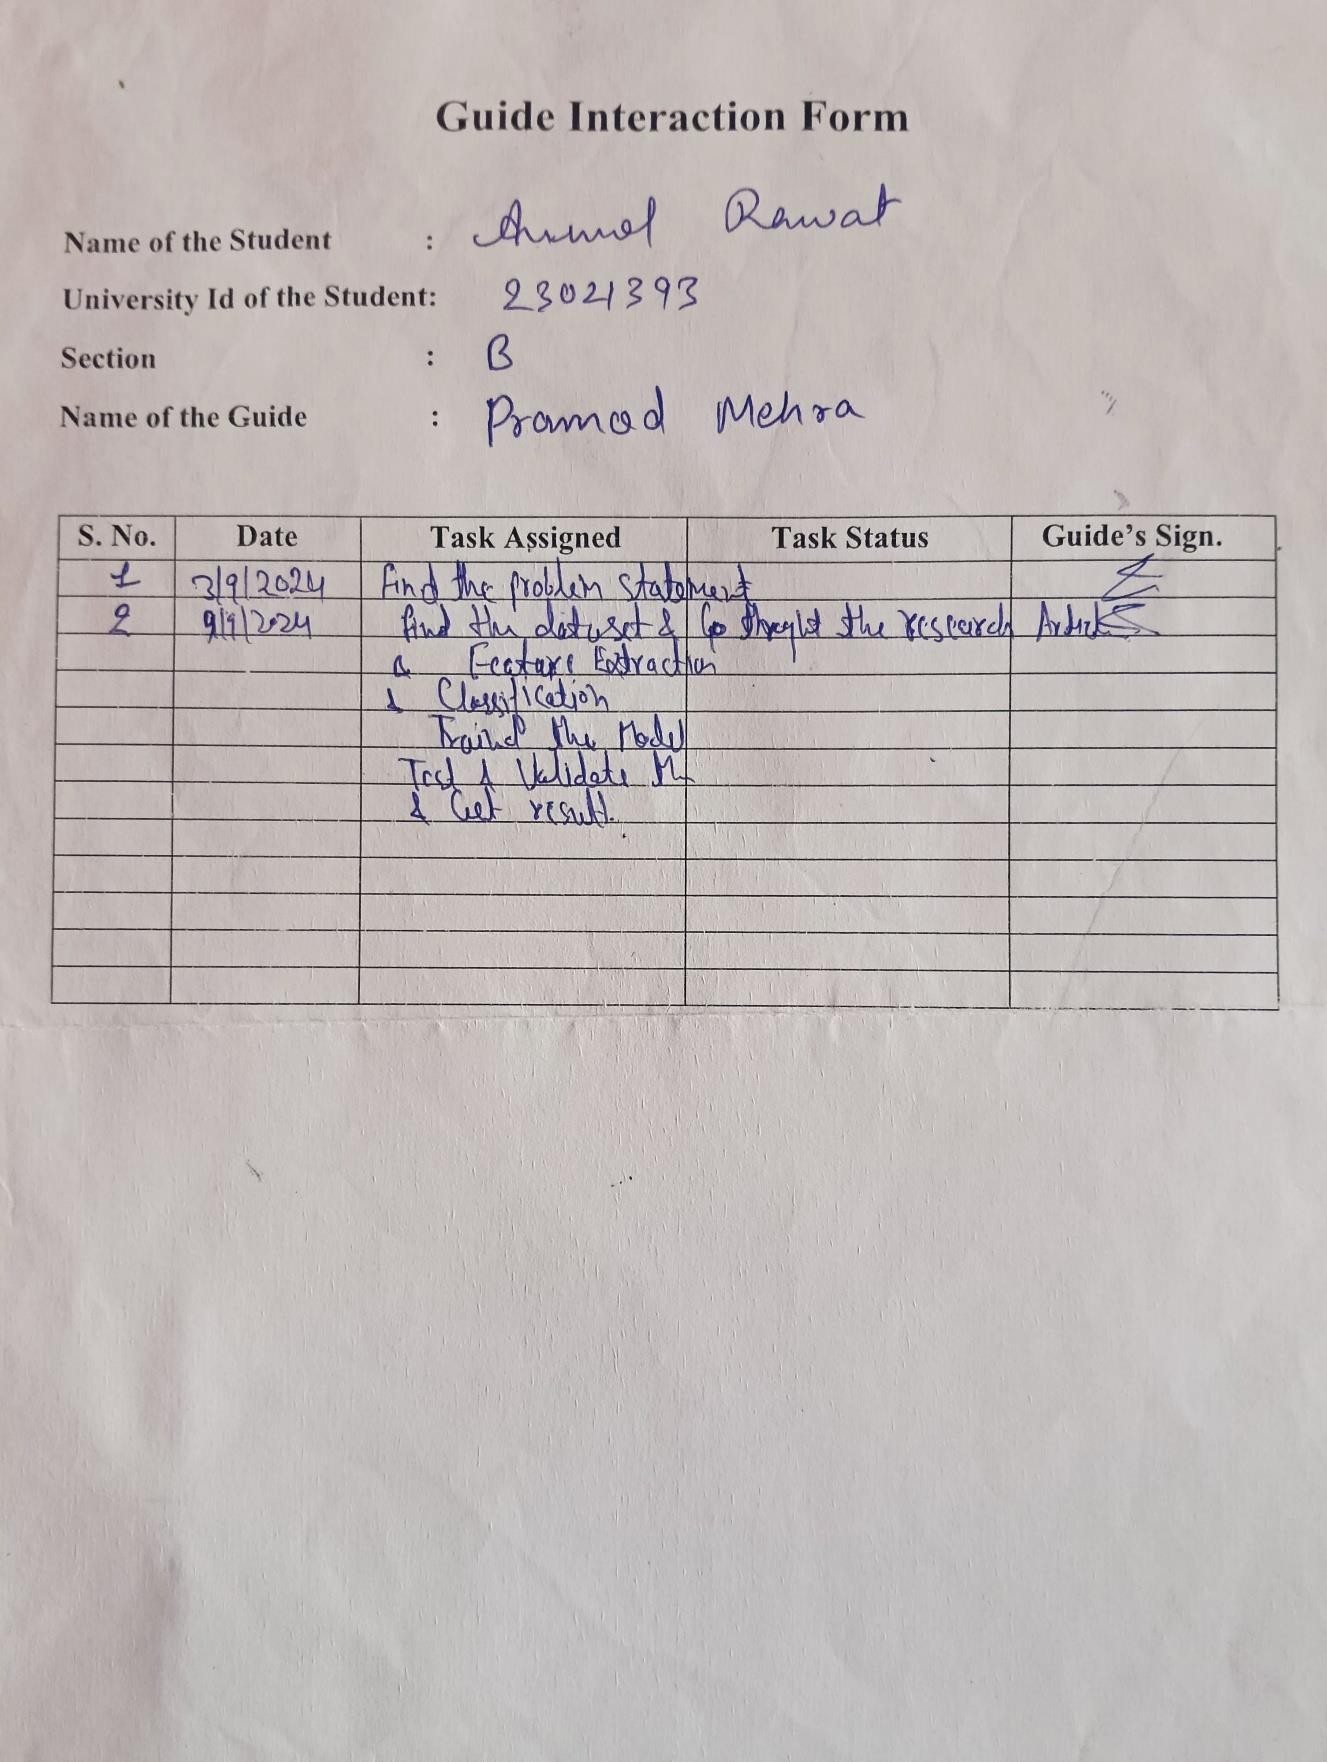 Guide Interaction Form
Name of the Student : Anmol Rawat
University Id of the Student: 23021393
Section : B
Name of the Guide : Pramod Mehra
S. No. Date Task Assigned Task Status Guide's Sign.
1 3/9/2024 find the problem statement
2 9/9/2024 find the dataset & Go throught the research Article
Feature Extraction
& Classification
Traind the Model
Test & Validate
& Get result.